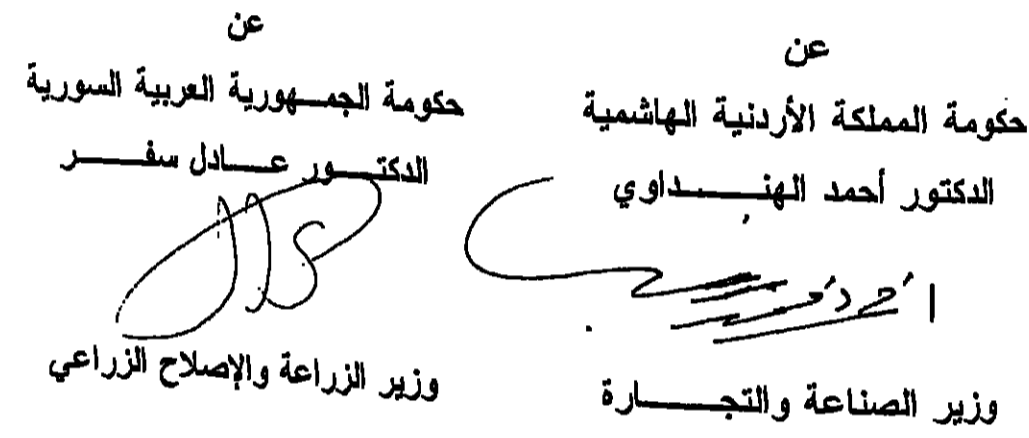 عن
حكومة المملكة الأردنية الهاشمية
الدكتور أحمد الهنـــــداوي
وزير الصناعة والتجـــــارة
عن
حكومة الجمـــهورية العربية السورية
الدكتـــور عـــادل سفـــــر
وزير الزراعة والإصلاح الزراعي